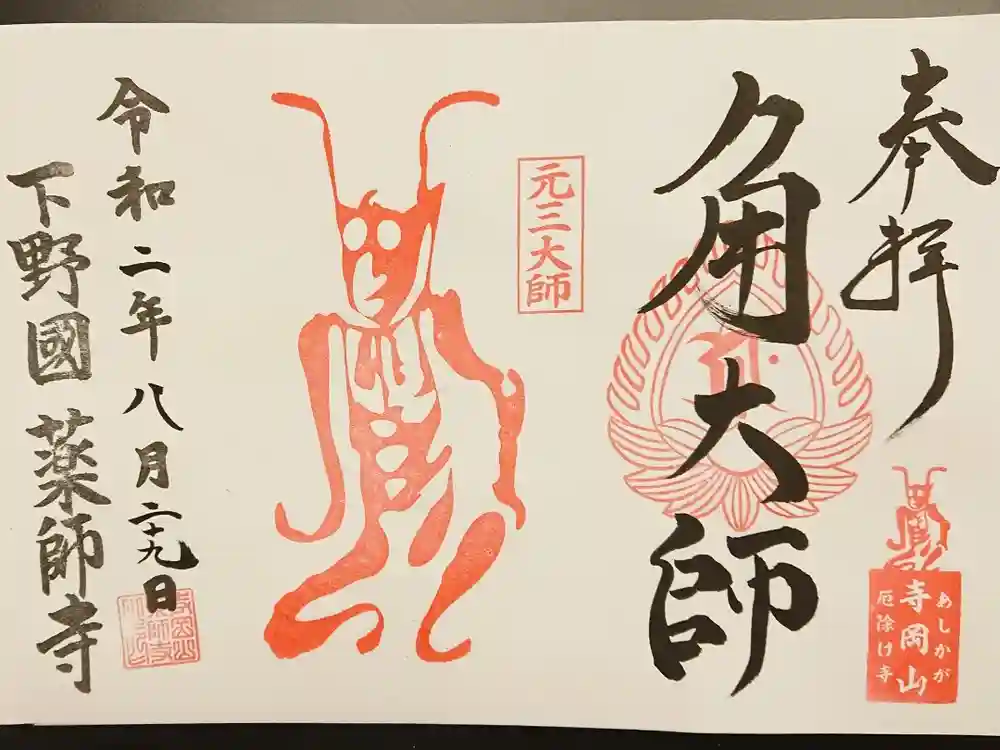 奉拝
あしかが
寺岡山
厄除け寺
角大師
元三大師
令和二年八月二十九日
下野國薬師寺